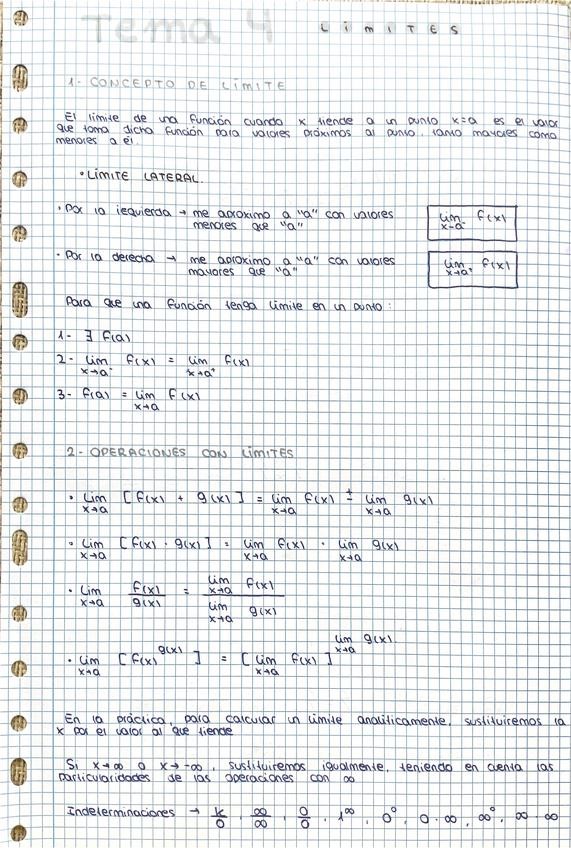 Tema 4 LIMITES
1- CONCEPTO DE LÍMITE
El límite de una función cuando x tiende a un punto x=a es el valor
que toma dicha función para valores próximos al punto, tanto mayores como
menores a él.
• LÍMITE LATERAL.
• Por la izquierda → me aproximo a "a" con valores
menores que "a"
lim f(x)
x→a⁻
• Por la derecha → me aproximo a "a" con valores
mayores que "a"
lim f(x)
x→a⁺
Para que una función tenga límite en un punto:
1- ∃ f(a)
2- lim f(x) = lim f(x)
x→a⁻ x→a⁺
3- f(a) = lim f(x)
x→a
2- OPERACIONES CON LÍMITES
• lim [f(x) + g(x)] = lim f(x) ± lim g(x)
x→a x→a x→a
• lim [f(x) · g(x)] = lim f(x) · lim g(x)
x→a x→a x→a
• lim f(x)/g(x) = lim f(x) / lim g(x)
x→a x→a x→a
• lim [f(x)^g(x)] = [lim f(x)]^lim g(x)
x→a x→a x→a
En la práctica, para calcular un límite analíticamente, sustituiremos la
x por el valor al que tiende
Si x→∞ o x→-∞, sustituiremos igualmente, teniendo en cuenta las
particularidades de las operaciones con ∞
Indeterminaciones → k/0, ∞/∞, 0/0, 1^∞, 0⁰, 0·∞, ∞⁰, ∞-∞